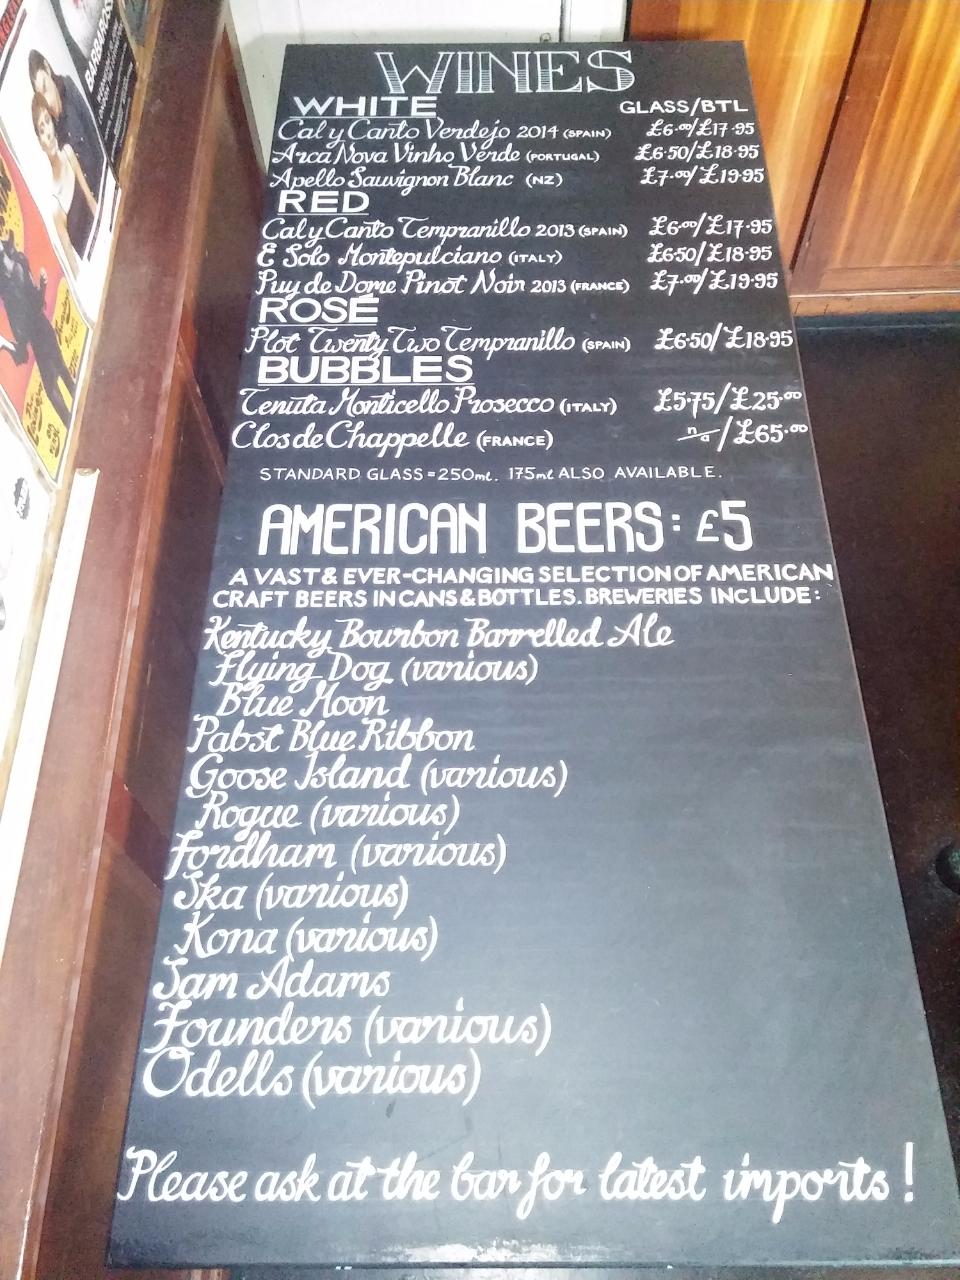 WINES
WHITE GLASS/BTL
Cal y Canto Verdejo 2014 (SPAIN) £6.00/£17.95
Arca Nova Vinho Verde (PORTUGAL) £6.50/£18.95
Apello Sauvignon Blanc (NZ) £7.00/£19.95
RED
Cal y Canto Tempranillo 2013 (SPAIN) £6.00/£17.95
E Solo Montepulciano (ITALY) £6.50/£18.95
Puy de Dome Pinot Noir 2013 (FRANCE) £7.00/£19.95
ROSÉ
Plot Twenty Two Tempranillo (SPAIN) £6.50/£18.95
BUBBLES
Tenuta Monticello Prosecco (ITALY) £5.75/£25.00
Clos de Chappelle (FRANCE) n/a/£65.00
STANDARD GLASS = 250ml. 175ml ALSO AVAILABLE.
AMERICAN BEERS: £5
A VAST & EVER-CHANGING SELECTION OF AMERICAN
CRAFT BEERS IN CANS & BOTTLES. BREWERIES INCLUDE:
Kentucky Bourbon Barrelled Ale
Flying Dog (various)
Blue Moon
Pabst Blue Ribbon
Goose Island (various)
Rogue (various)
Fordham (various)
Ska (various)
Kona (various)
Sam Adams
Founders (various)
Odells (various)
Please ask at the bar for latest imports!